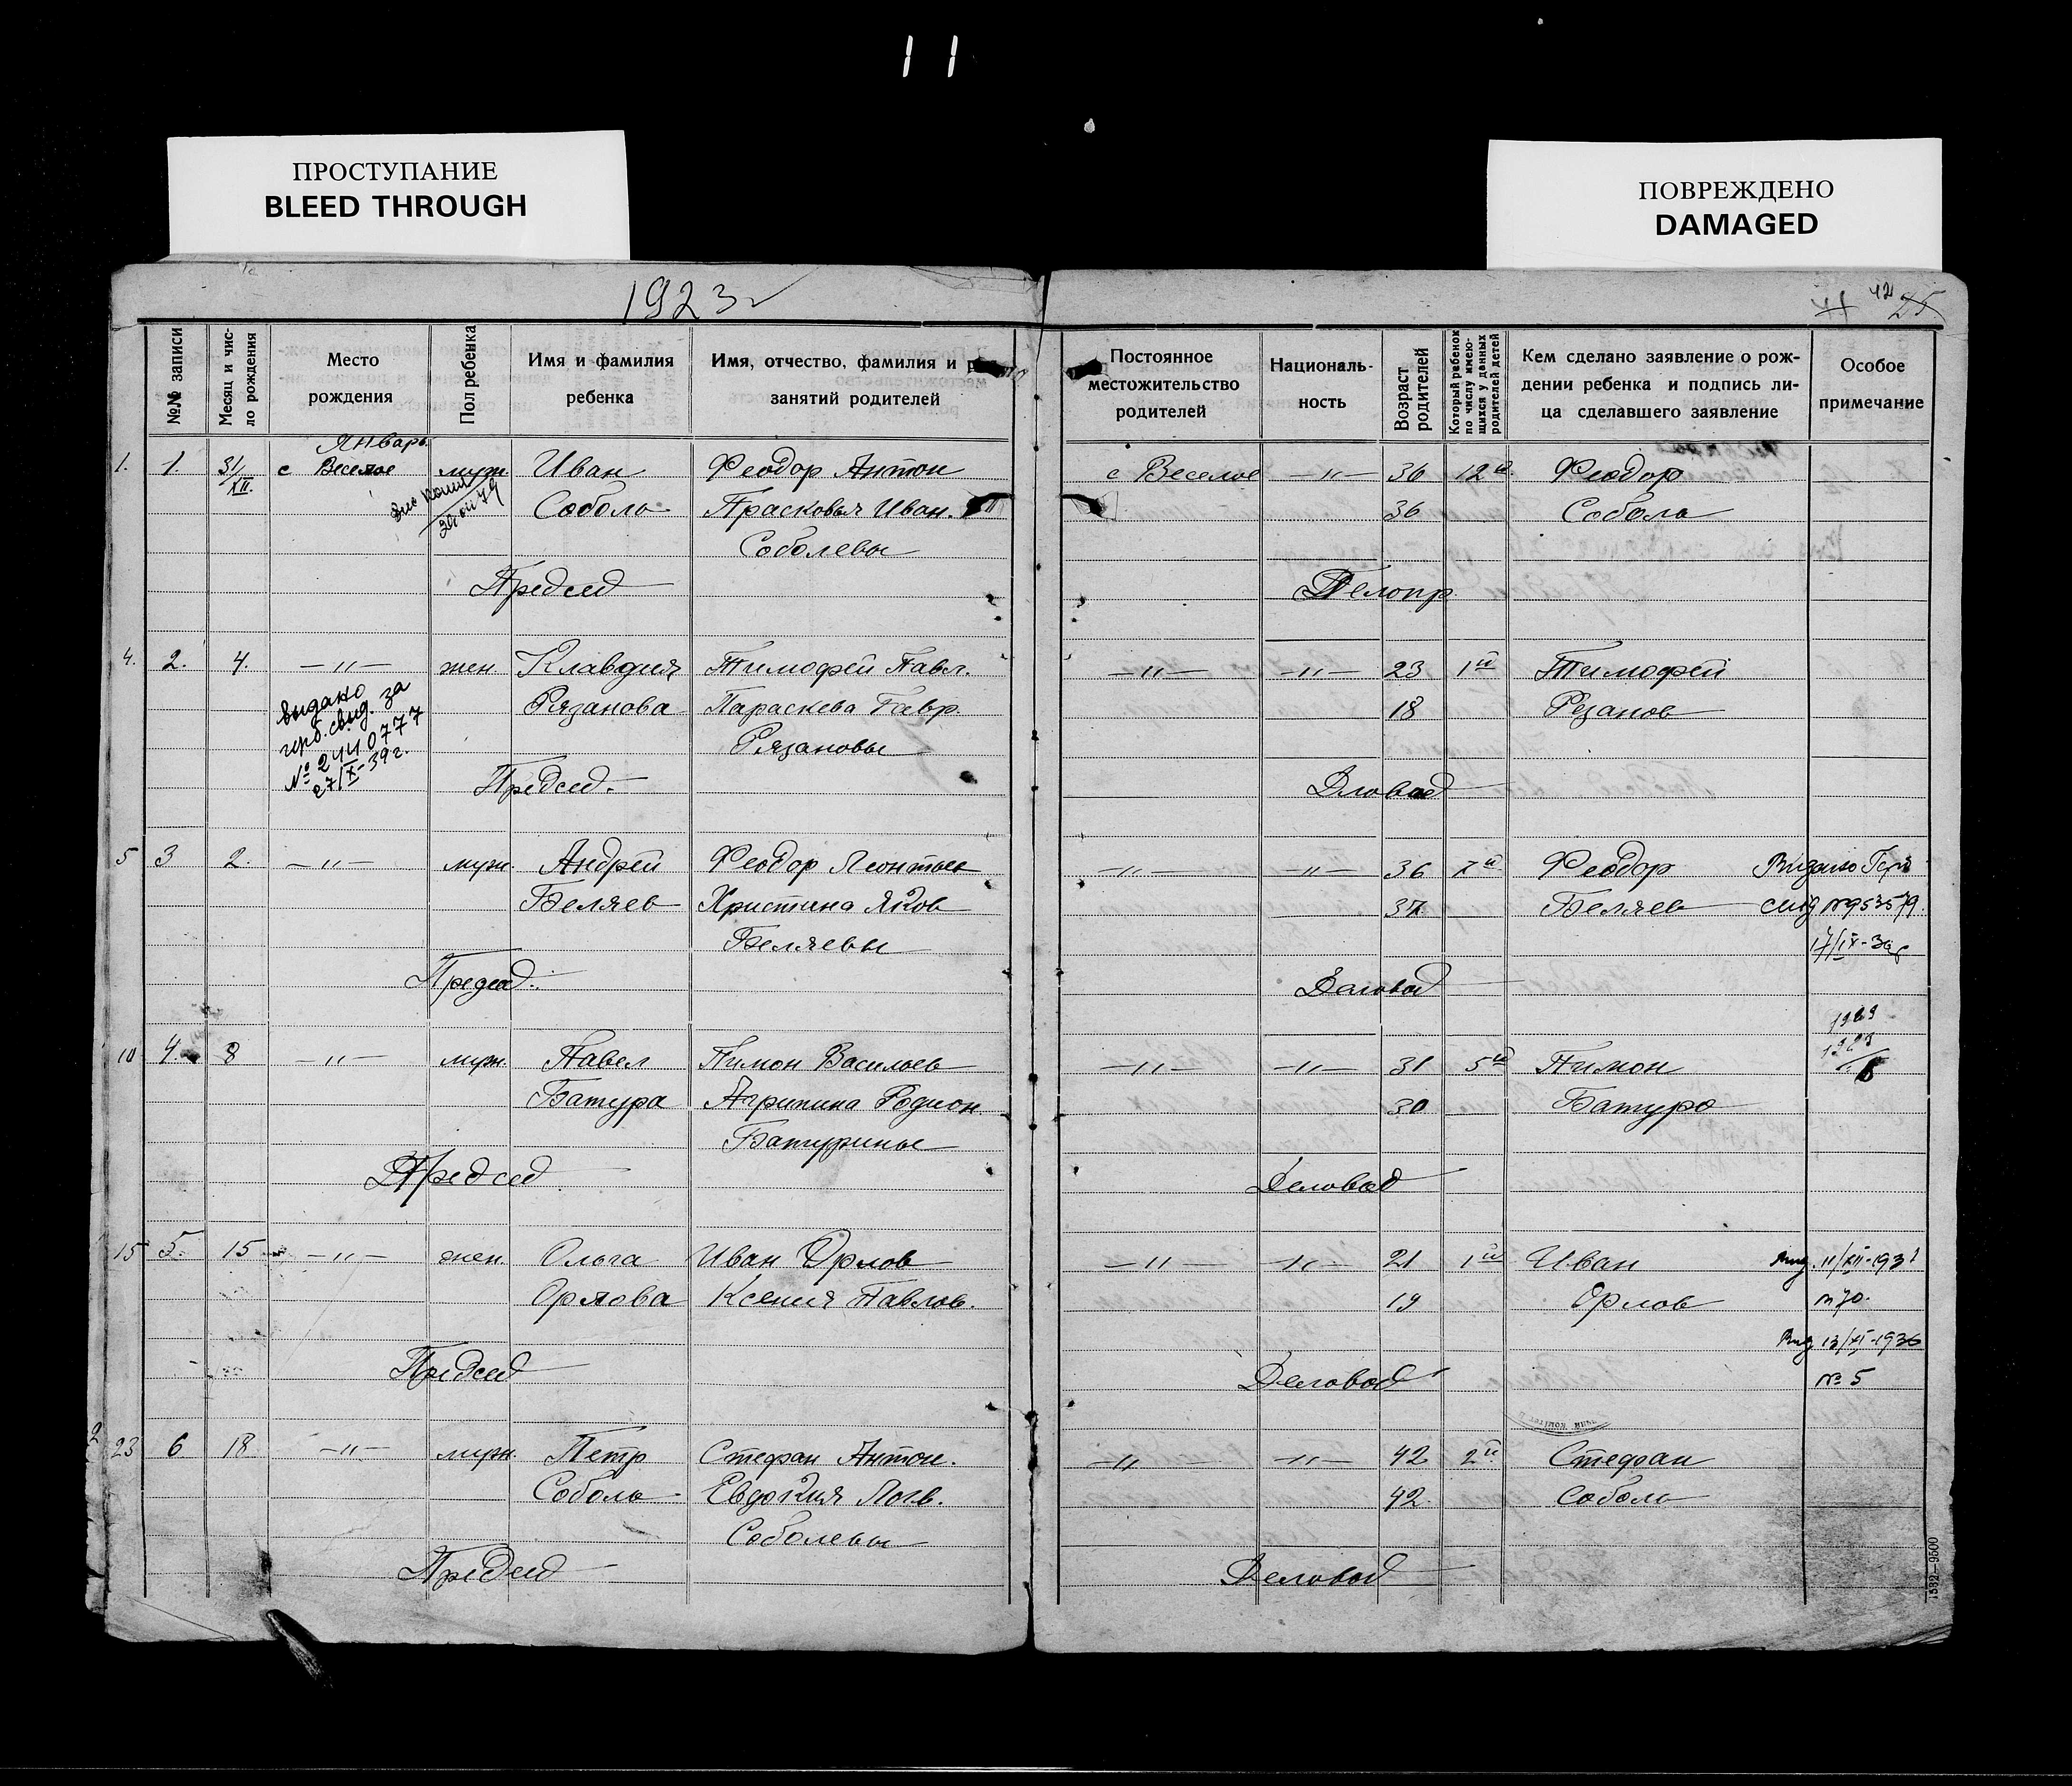 11
ПРОСТУПАНИЕ
BLEED THROUGH
ПОВРЕЖДЕНО
DAMAGED
1923
42 25
№№ записи
Месяц и чис-
ло рождения
Место
рождения
Пол ребенка
Имя и фамилия
ребенка
Имя, отчество, фамилия и р
занятий родителей
Постоянное
местожительство
родителей
Националь-
ность
Возраст
родителей
Который ребенок
по числу имею-
щихся у данных
родителей детей
Кем сделано заявление о рож-
дении ребенка и подпись ли-
ца сделавшего заявление
Особое
примечание
Январь
1. 1. 31/XII. с Веселое муж. Иван Феодор Антон с Веселое —"— 36 12й Феодор
Соболь Прасковья Иван. 36 Соболь
Соболевы
Председ Делопр.
4. 2. 4. —"— жен. Клавдия Тимофей Павл. —"— —"— 23 1й Тимофей
Рязанова Параскева Гавр. 18 Резанов
Рязановы
выдано
герб. свид. за
№ 2440777
27/X-39г.
Председ. Дловод
5 3 2. —"— муж. Андрей Феодор Леонтьев —"— —"— 36 7й Феодор Выдано Герб
Беляев Христина Яков 37 Беляев свид №953579.
Беляевы 17/IX-36г
Председ. Деловод
1969
10 4. 8 —"— муж. Павел Пимон Васильев —"— —"— 31 5й Пимон
Батура Агрипина Родион 30 Батура
Батурины
Председ Деловод
15 5. 15 —"— жен. Ольга Иван Орлов —"— —"— 21 1й Иван выд. 11/XII-1931
Орлова Ксения Павлов. 19 Орлов №70.
Выд 13/XI-1936
Председ Деловод № 5
23 6. 18. —"— муж. Петр Стефан Антон. —"— —"— 42 2й Стефан
Соболь Евдокия Логв. 42. Соболь
Соболевы
Председ Деловод
1532—9500